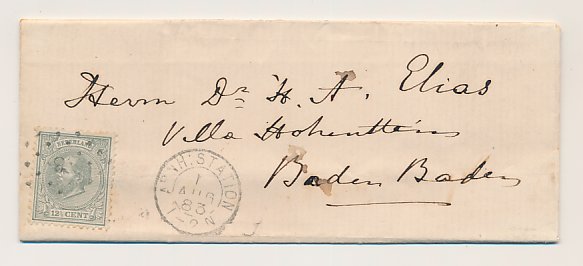 Herrn Dr H. A. Elias
Villa Hohenstein
Baden Baden
NEDERLAND
12½ CENT
ARNH: STATION
1
AUG
83